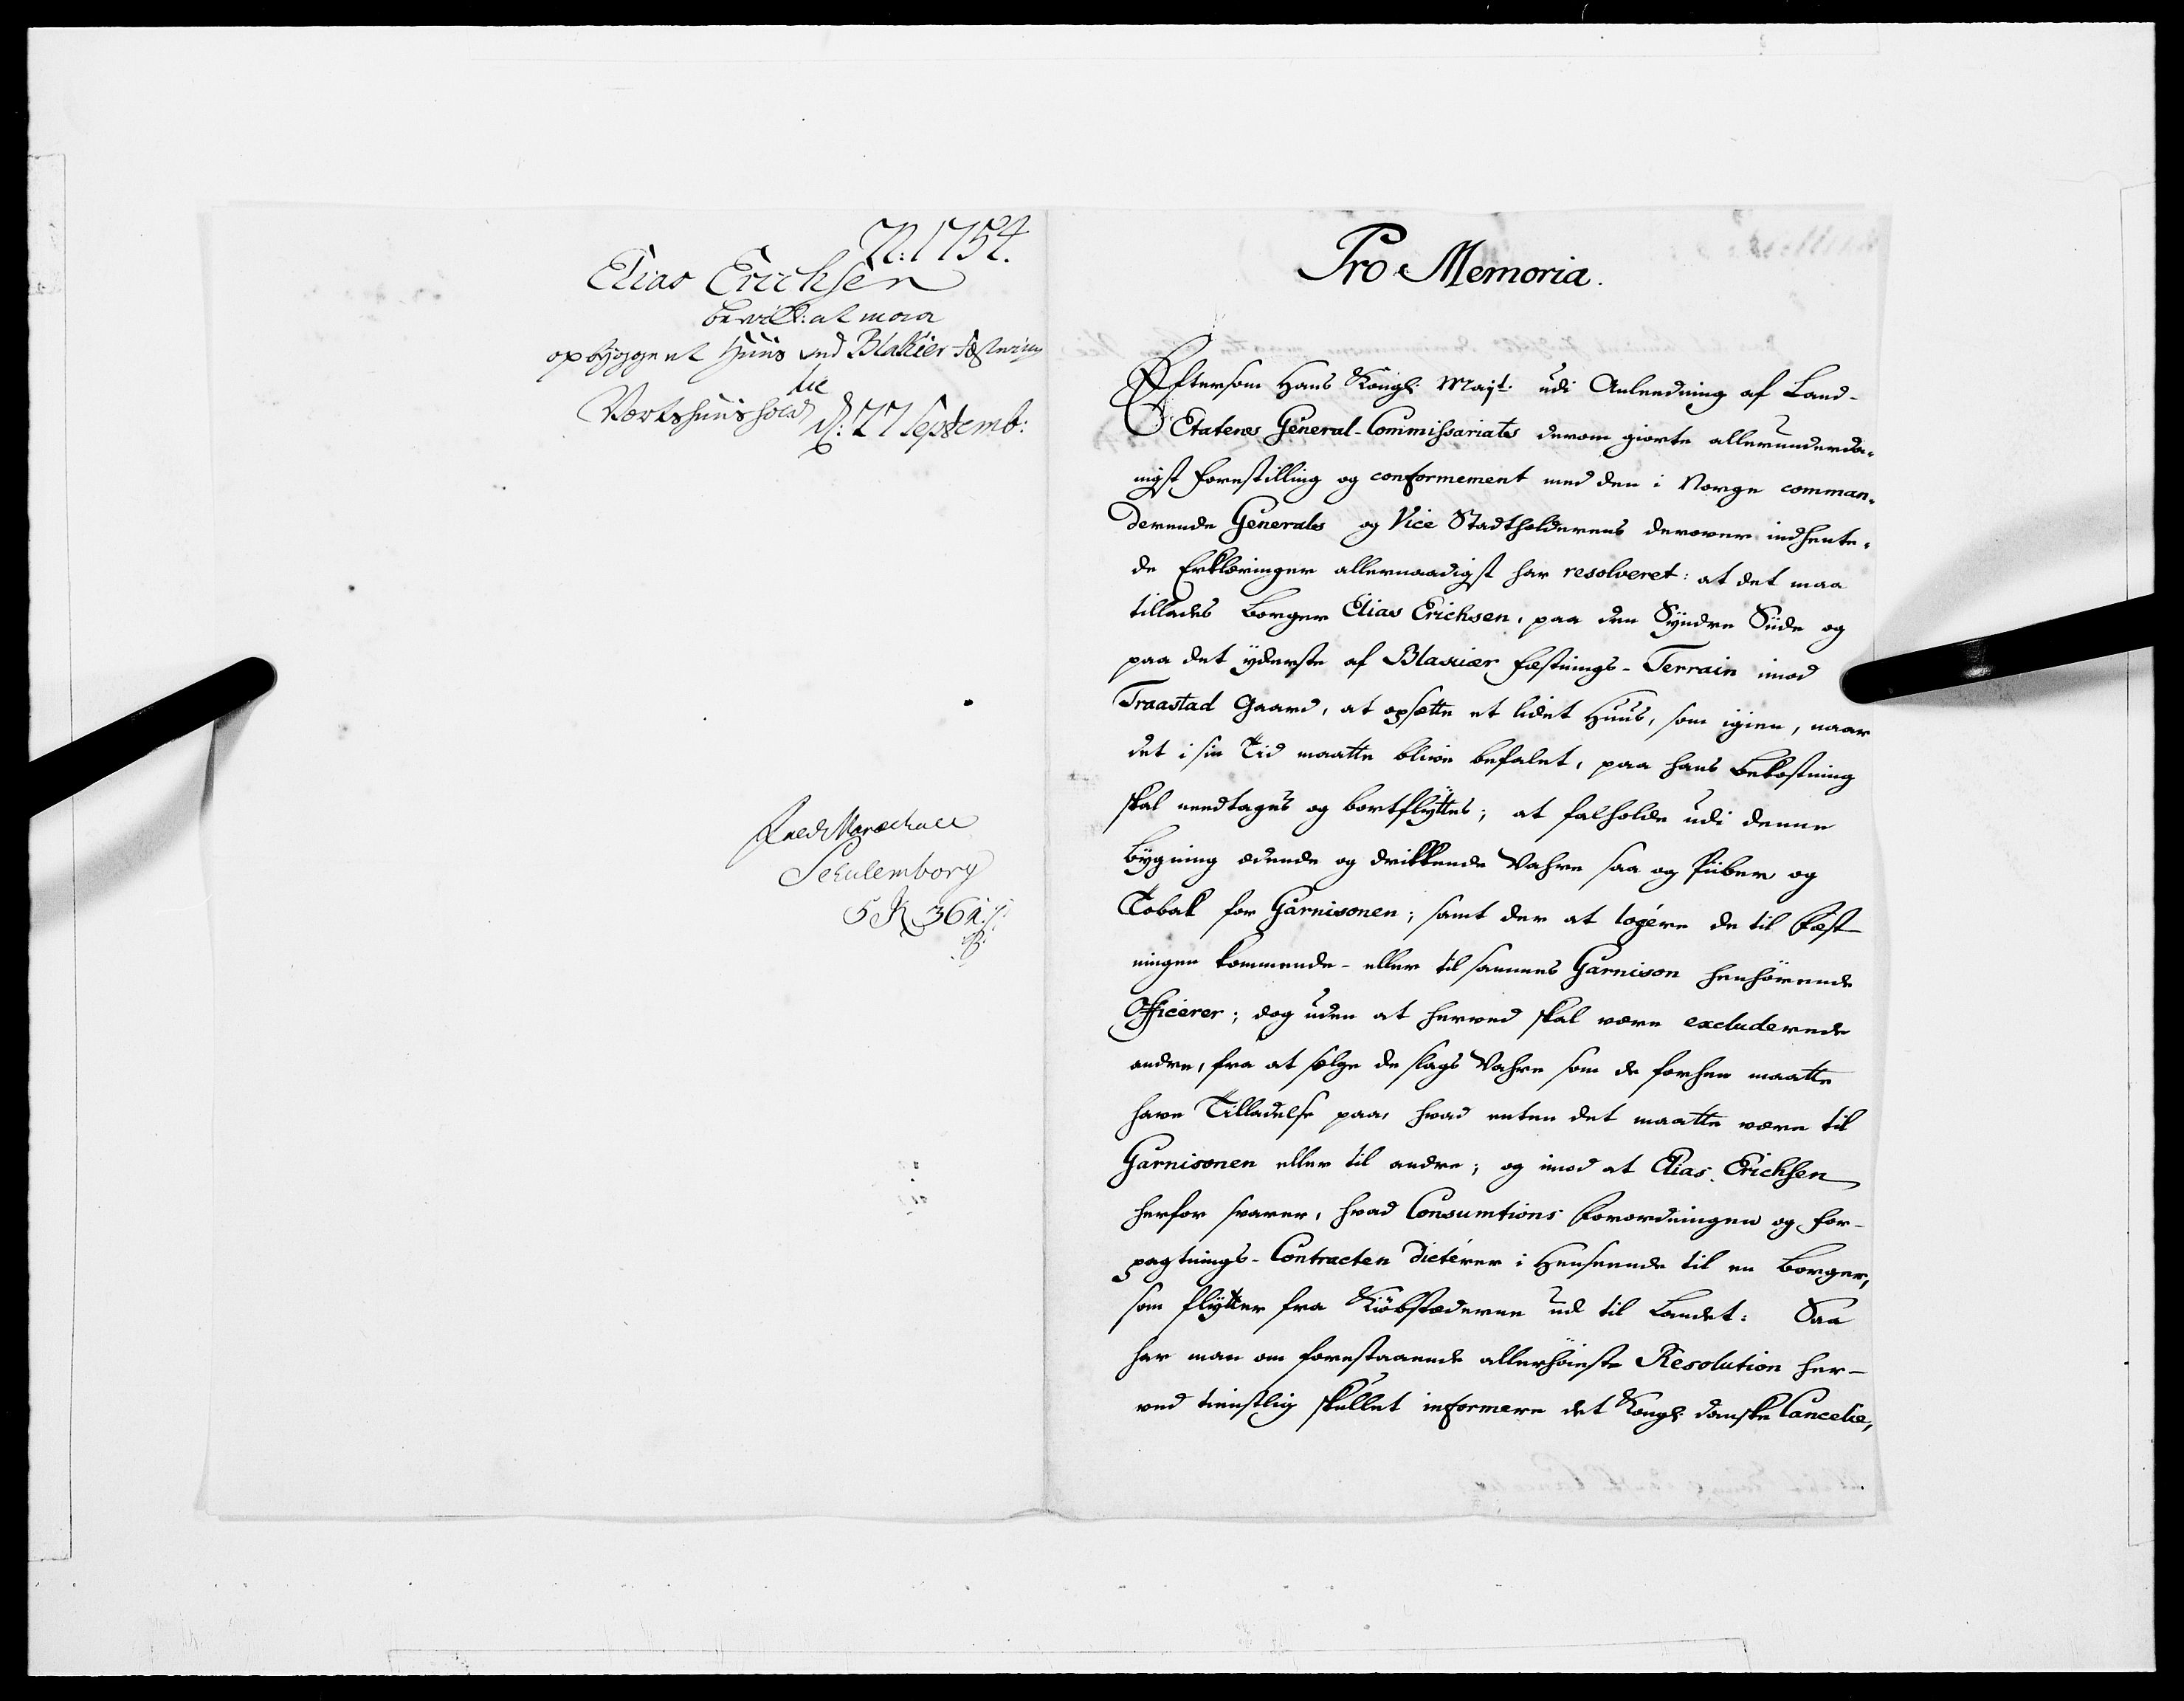 N: 1754.
Elias Erichsen
bevill: at maa
opbygge et Huus ved Blakier Fæstning
til
Vertshuushold d: 27 Septemb:
Feldt Marschall
Schulemborg
Pro Memoria.
Eftersom Hans Kongl: Mayt: udi Anleedning af Land-
Etatens General-Commissariats derom giorte allerunderda-
nigst Forestilling og conformement med den i Norge comman-
derende Generals og Vice Stadtholderens derover indhente-
de Erklæringer allernaadigst har resolveret: at det maa
tillades Borger Elias Erichsen, paa den Syndre Siide og
paa det yderste af Blakiær Fæstnings-Terrain imod
Traastad Gaard, at opsætte et lidet Huus, som igien, naar
det i sin Tid maatte blive befalet, paa hans Bekostning
skal needtages og bortflyttes; at falholde udi denne
Bygning ædende og drikkende Vahre saa og Piiber og
Tobak for Garnisonen; samt der at logére de til Fæst-
ningen kommende- eller til sammes Garnison henhörende
Officerer; dog uden at herved skal være excluderede
andre, fra at sælge de slags Vahre som de forhen maatte
have Tilladelse paa, hvad enten det maatte være til
Garnisonen eller til andre; og imod at Elias Erichsen
herfor svarer, hvad Consumtions Forordningen og For-
pagtnings-Contracten dictérer i Henseende til en Borger,
som flytter fra Kiöbstæderne ud til Landet: Saa
har man om forestaaende allerhöieste Resolution her-
ved tienstlig skullet informere det Kongl: danske Cancelie,